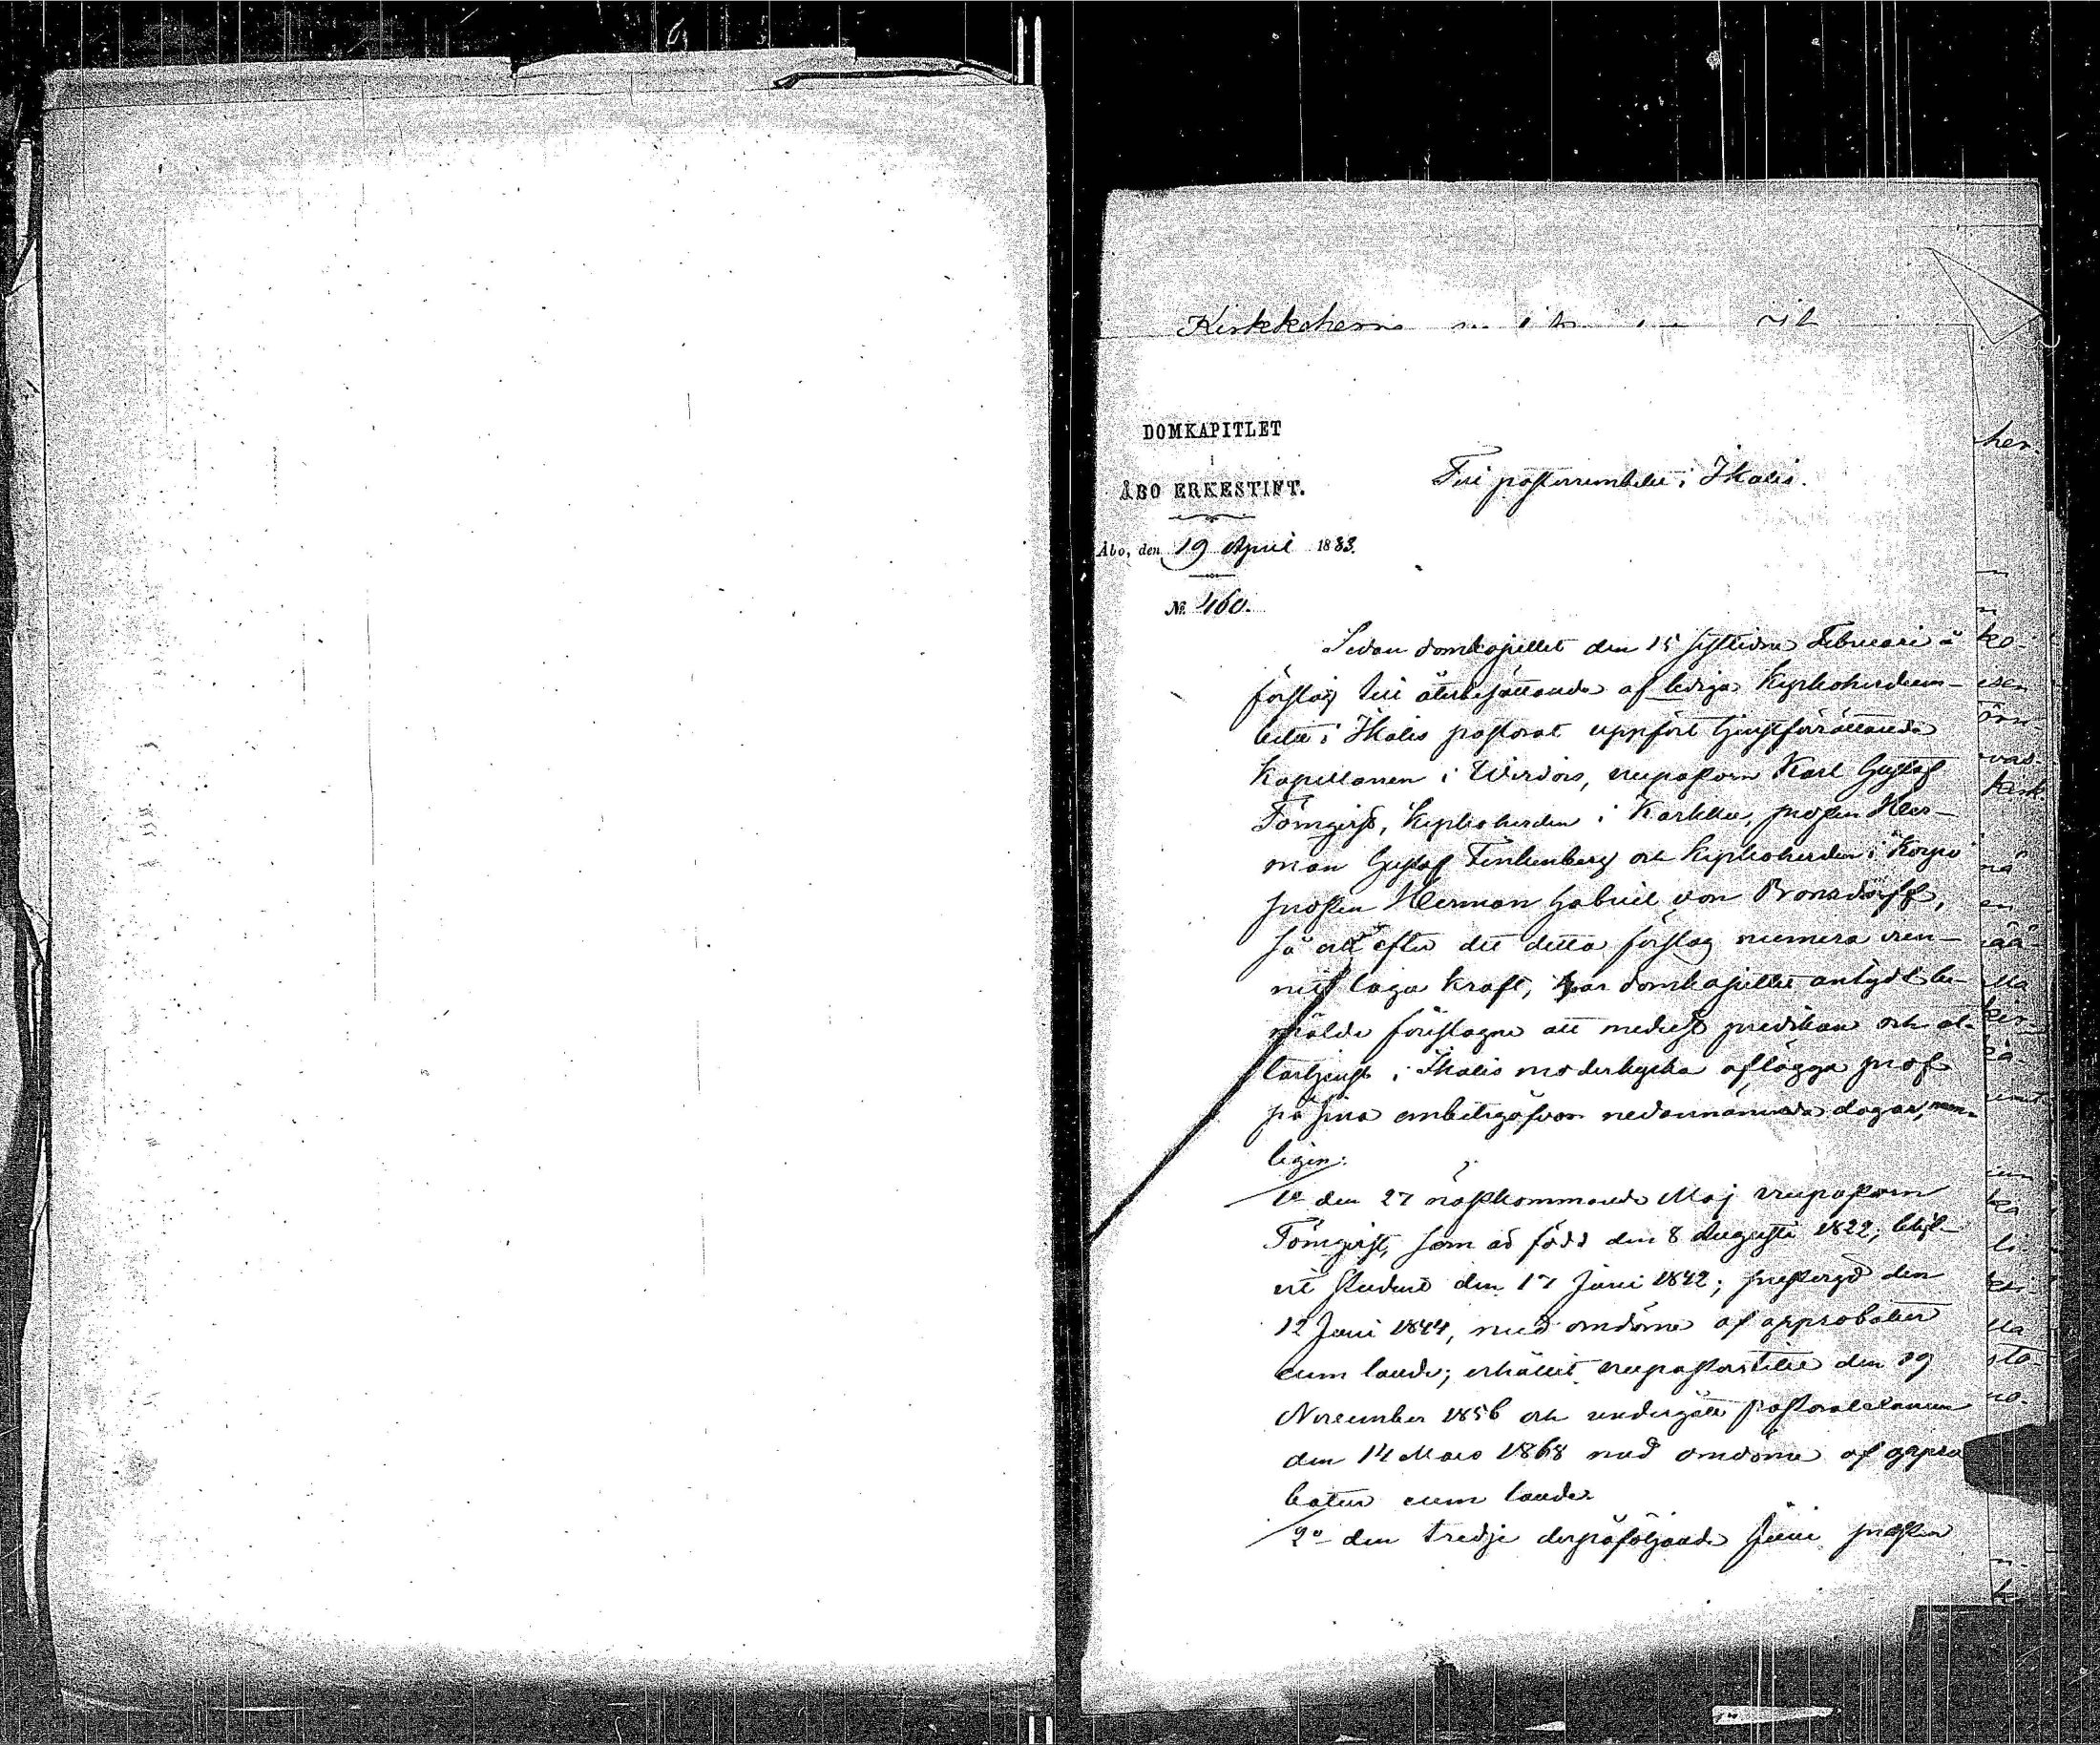 Kirkkoherra
DOMKAPITLET
I
ÅBO ERKESTIFT.
Till pastorsembetet i Ikalis.
Åbo, den 19 April 1883.
№ 460.
Sedan domkapitlet den 15 sistlidne Februari å
förslag till återbesättande af lediga Kyrkoherdeem-
betet i Ikalis pastorat uppfört tjenstförrättande
Kapellanen i Wirdois, vicepastorn Karl Gustaf
Törnqvist, Kyrkoherden i Karkku, prosten Her-
man Gustaf Finkenberg och Kyrkoherden i Korpo
prosten Herman Gabriel von Bonsdorff,
så ock efter det detta förslag numera vun-
nit laga kraft, har domkapitlet antydt be-
mälde föreslagne att medelst predikan och al-
tartjenst i Ikalis moderkyrka aflägga prof
på sina embetsgåfvor nedannämnda dagar, nem-
ligen:
1o den 27 nästkommande Maj vicepastorn
Törnqvist, som är född den 8 Augusti 1822; blif-
vit student den 17 Juni 1842; prestvigd den
12 Juni 1844, med omdöme af approbatur
cum laude; erhållit vicepastorstitel den 19
November 1856 och undergått pastoralexamen
den 14 Mars 1868 med omdöme af appro
batur cum laude.
2o den tredje derpåföljande Juni prosten
her.
ko-
esen
vas-
kirk.
nä
en
ää-
lla
ker-
kä-
li-
sta-
no-